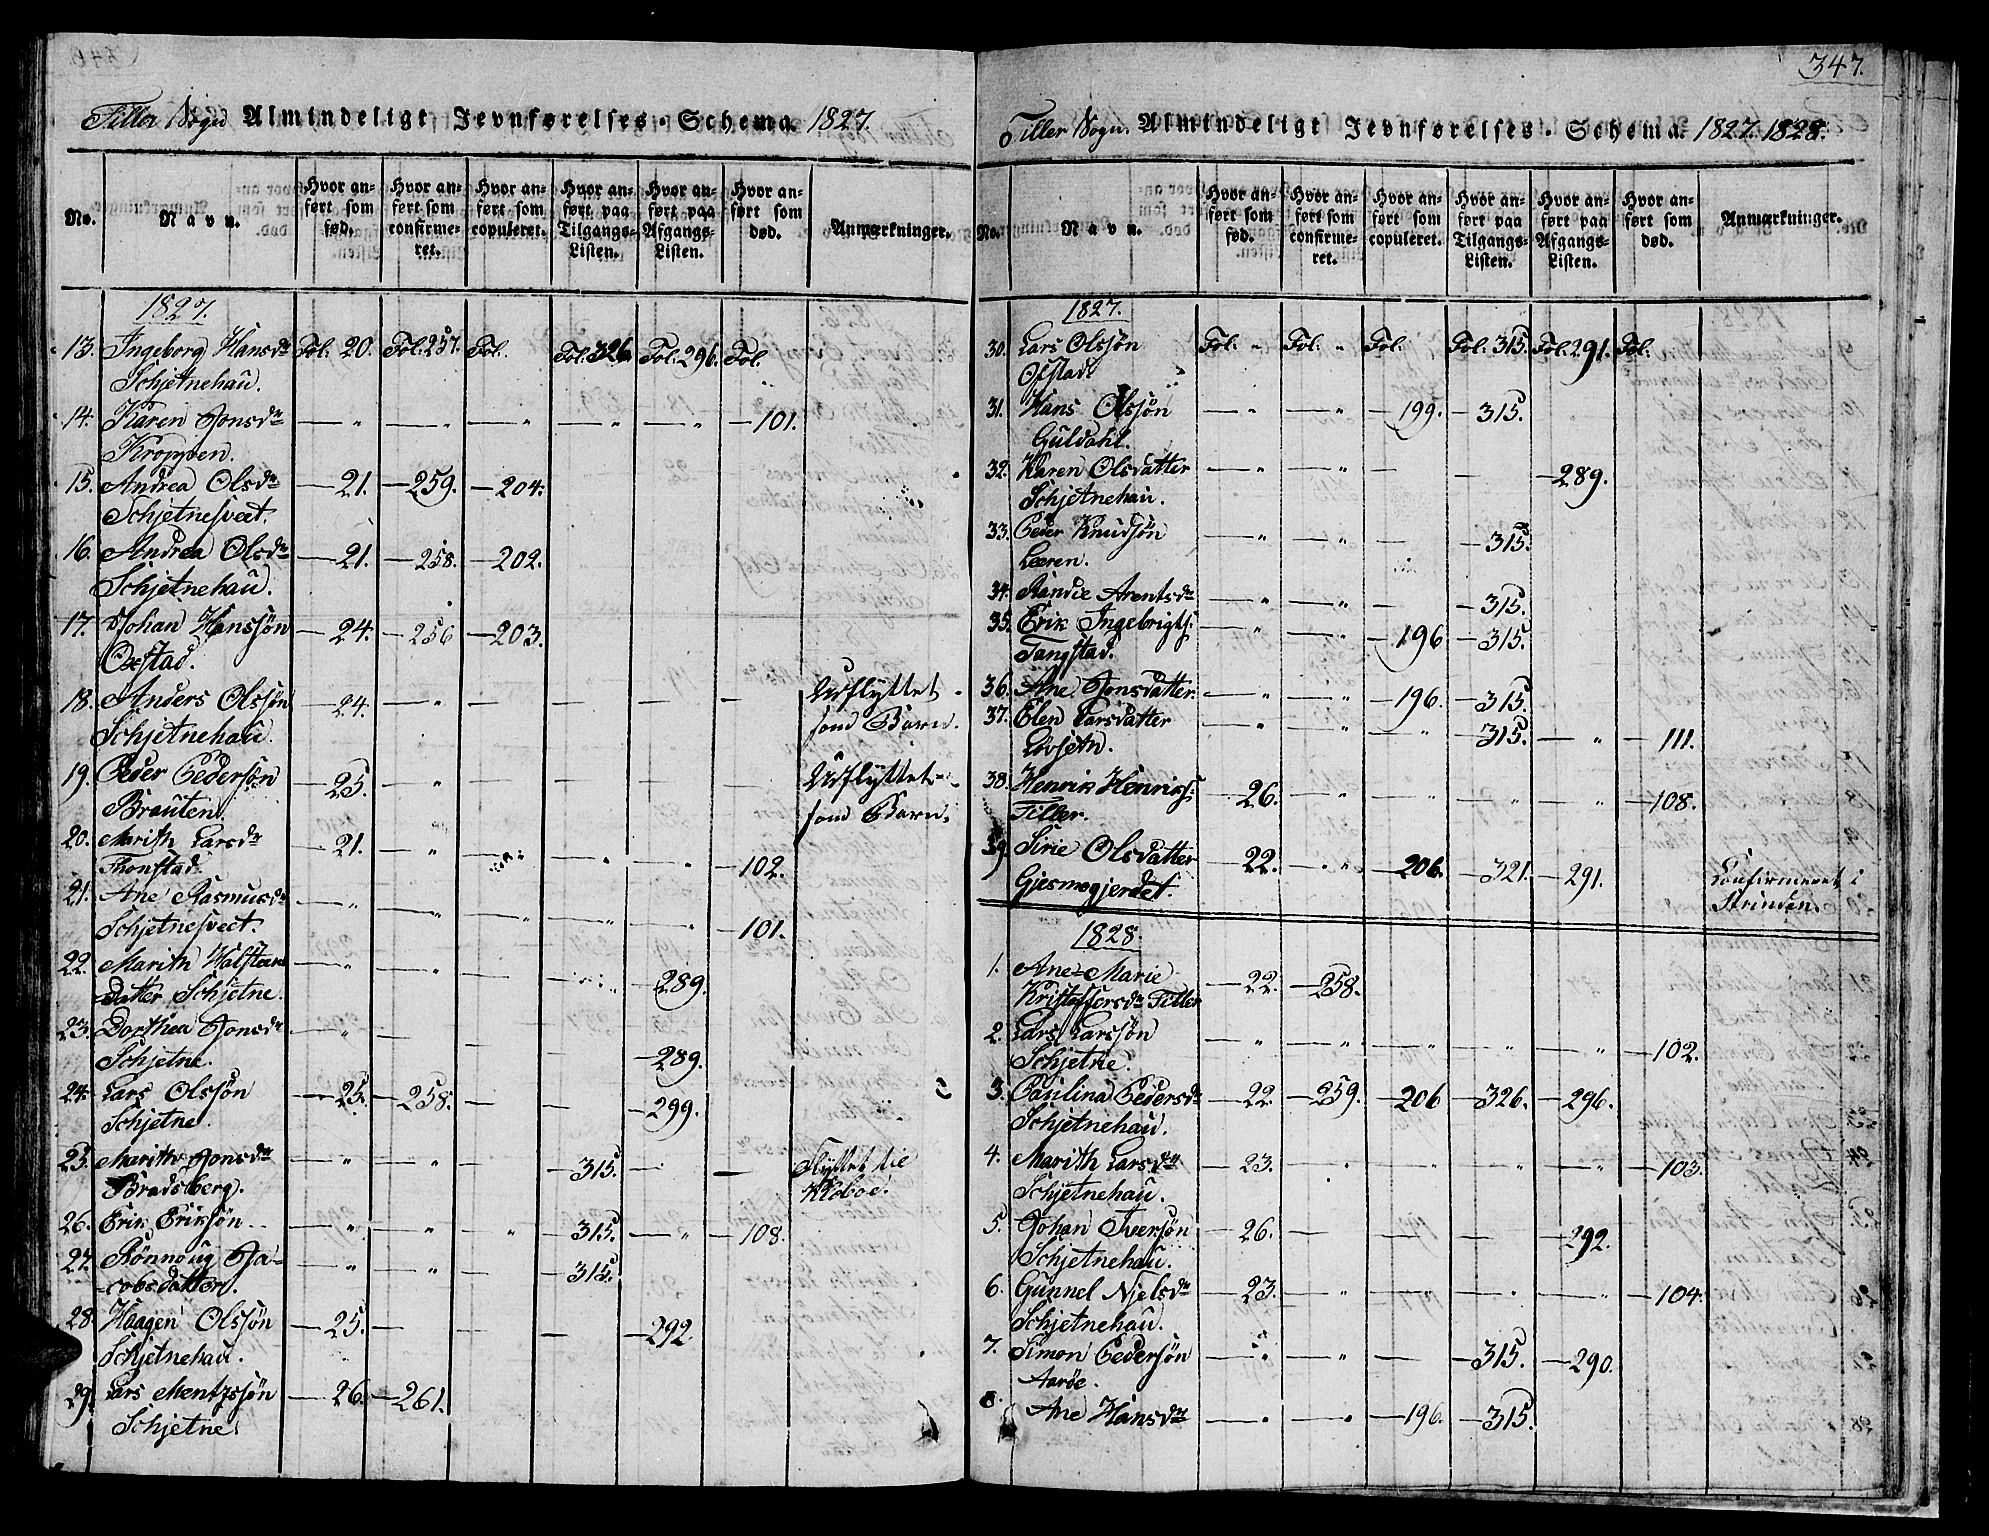 Tiller Sogn Almindeligt Jevnførelses-Schema. 1827.
No.
Navn.
Hvor anført som fød.
Hvor anført som confirmeret.
Hvor anført som copuleret.
Hvor anført paa Tilgangs-Listen.
Hvor anført paa Afgangs-Listen.
Hvor anført som død.
Anmærkninger.
1827.
13. Ingeborg Hansdr Fol. 20. Fol. 257. Fol. Fol. 326 Fol. 296. Fol.
Schjetnehau.
14. Karen Jonsdr — „ — „ — „ — „ — „ — 101.
Kroppen.
15. Andrea Olsdr — 21. — 259. — 204.
Schjetnesveet.
16. Andrea Olsdr — 21. — 258. — 202.
Schjetnehau.
17. Johan Hanssøn — 24. — 256 — 203.
Oxstad.
18. Anders Olssøn — 24. — „ — — — — Udflyttet
Schjetnehau. som Barn.
19. Peder Pedersøn — 25. — „ — — — — Udflyttet
Brauten. som Barn.
20. Marith Larsdr — 21. — „ — „ — „ — „ — 102.
Thonstad.
21. Ane Rasmusdr — „ — „ — „ — „ — „ — 101.
Schjetnesveet.
22. Marith Halsteens — „ — „ — — — 289.
datter Schjetne.
23. Dorthea Jonsdr — „ — — — — 289.
Schjetne.
24. Lars Olssøn — 25. — 258. — — — 299.
Schjetne.
25. Marith Jonsdr — „ — „ — — 315. — — Flyttet til
Bradsberg. Klæboe.
26. Erik Eriksøn. — „ — „ — „ — 315. — „ — 108.
27. Rønnoug Ja- — „ — „ — — 315.
cobsdatter.
28. Haagen Olssøn — 25. — — — — 292.
Schjetnehau.
29. Lars Mentzssøn — 26. — 261.
Schjetne
347.
Tiller Sogn. Almindeligt Jevnførelses-Schema. 1827. 1828.
No.
Navn.
Hvor anført som fød.
Hvor anført som confirmeret.
Hvor anført som copuleret.
Hvor anført paa Tilgangs-Listen.
Hvor anført paa Afgangs-Listen.
Hvor anført som død.
Anmærkninger.
1827.
30. Lars Olssøn Fol. „ Fol. „ Fol. Fol. 315. Fol. 291. Fol.
Ofstad.
31. Hans Olssøn — „ — „ — 199. — 315.
Guldahl.
32. Karen Olsdatter — „ — „ — — — 289.
Schjetnehau.
33. Peder Knudsøn — „ — „ — — 315.
Leeren.
34. Randie Arentsdr — „ — „ — — 315.
35. Erik Ingebrigts: — „ — „ — 196 — 315.
Tangstad.
36. Ane Jonsdatter. — „ — „ — 196. — 315.
37. Elen Larsdatter — „ — „ — „ — 315. — „ — 111.
Løvsetn.
38. Henrik Henriks: — 26. — „ — „ — „ — „ — 108.
Tiller.
39. Sirie Olsdatter — 22. — „ — 206. — 321. — 291. Confirmeret i
Gjesmogjerdet. Strinden.
1828.
1. Ane Marie — 22. — 258.
Kristoffersdr Tiller
2. Lars Larssøn — „ — „ — „ — „ — „ — 102.
Schjetne.
3. Paulina Pedersdr — 22. — 259. — 206 — 326. — 296.
Schjetnehau.
4. Marith Larsdr — 23. — „ — „ — „ — „ — 103.
Schjetnehau.
5. Johan Iversøn — 26. — — — — 292.
Schjetnehau.
6. Gunnel Njelsdr — 23. — „ — „ — „ — „ — 104.
Schjetnehau.
7. Simon Pedersøn — „ — „ — — 315. — 290.
Aarøe.
8. Ane Hansdr — „ — „ — 196. — 315.